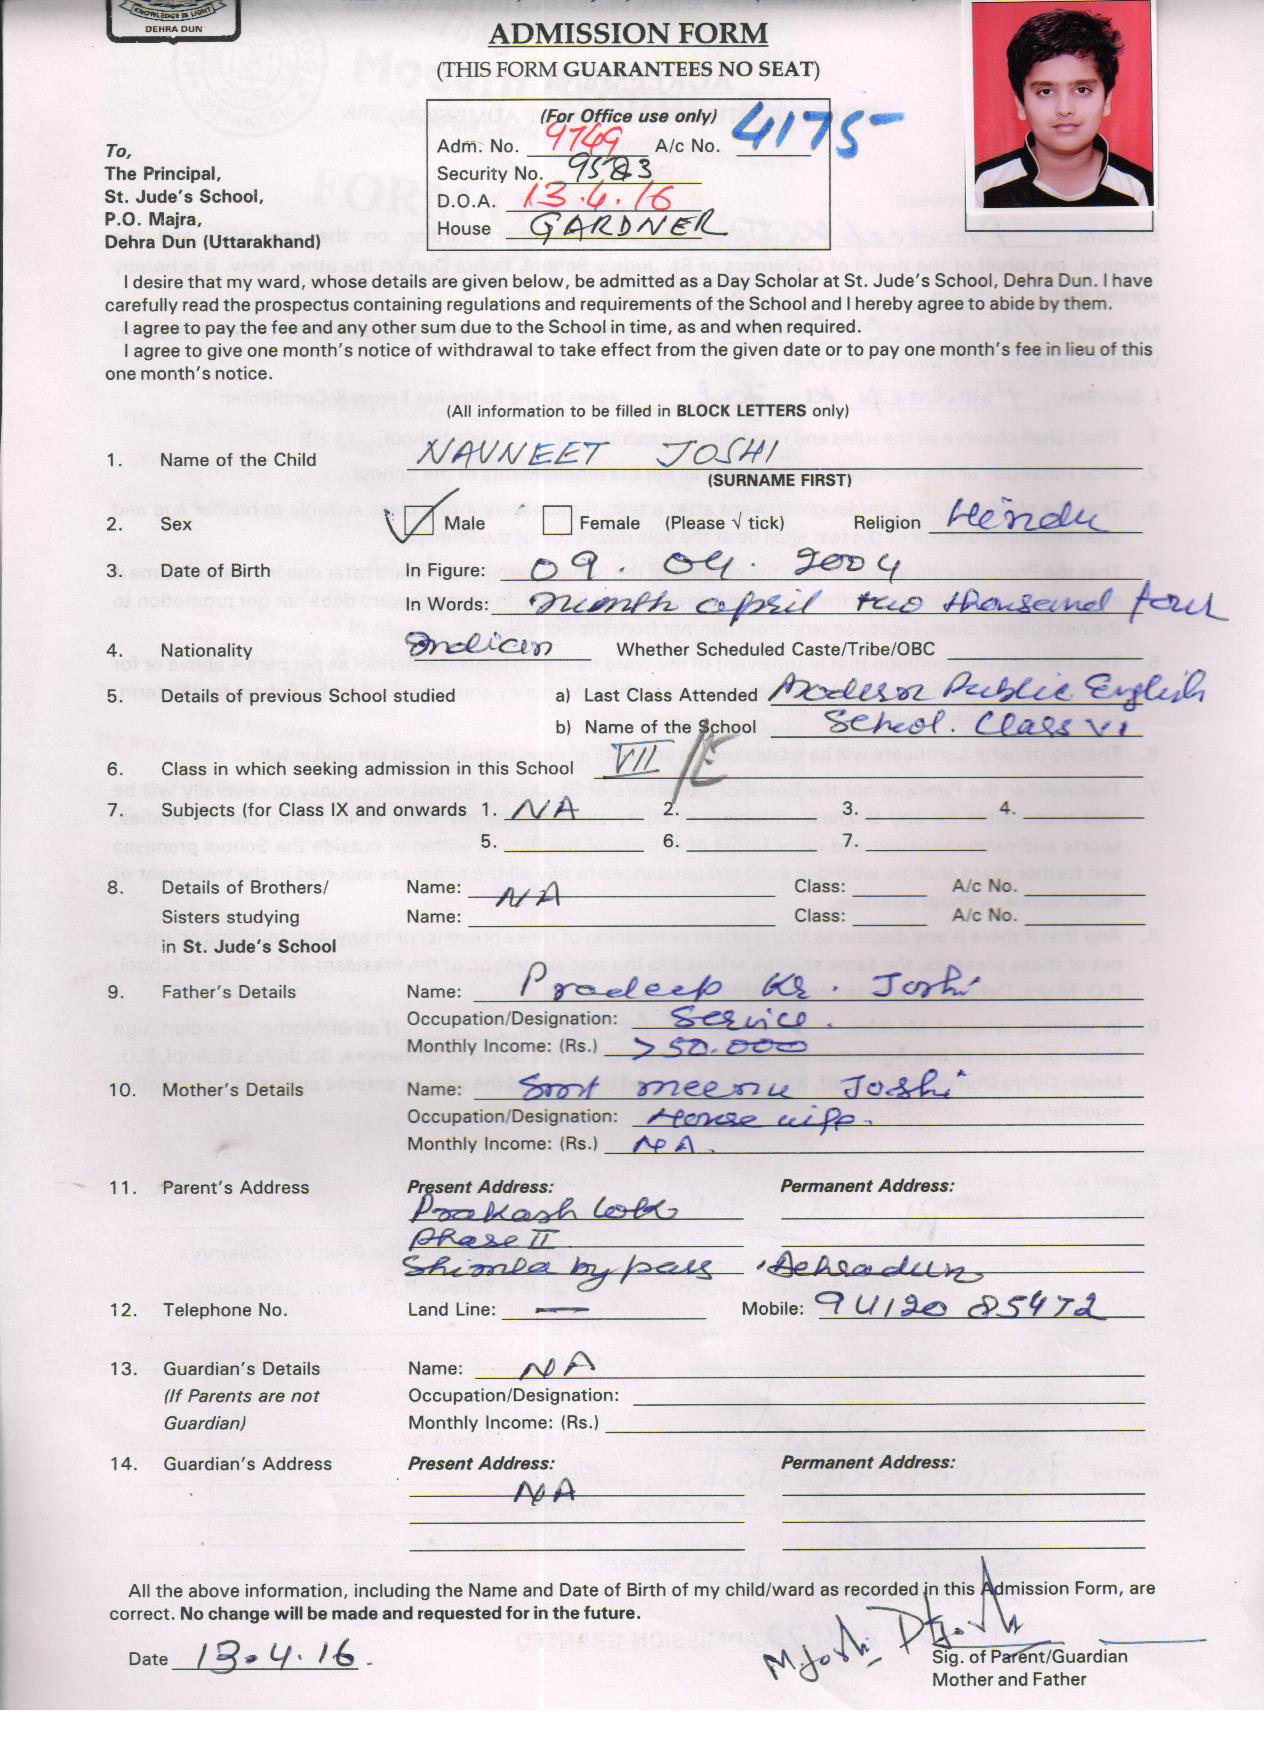 KNOWLEDGE IS LIGHT
DEHRA DUN
ADMISSION FORM
(THIS FORM GUARANTEES NO SEAT)
(For Office use only)
Adm. No. 9749 A/c No. 4175
Security No. 9583
D.O.A. 13.4.16
House GARDNER
To,
The Principal,
St. Jude's School,
P.O. Majra,
Dehra Dun (Uttarakhand)
I desire that my ward, whose details are given below, be admitted as a Day Scholar at St. Jude's School, Dehra Dun. I have
carefully read the prospectus containing regulations and requirements of the School and I hereby agree to abide by them.
I agree to pay the fee and any other sum due to the School in time, as and when required.
I agree to give one month's notice of withdrawal to take effect from the given date or to pay one month's fee in lieu of this
one month's notice.
(All information to be filled in BLOCK LETTERS only)
1. Name of the Child NAVNEET JOSHI
(SURNAME FIRST)
2. Sex Male Female (Please √ tick) Religion Hindu
3. Date of Birth In Figure: 09. 04. 2004
In Words: Nineth april two thousand four
4. Nationality Indian Whether Scheduled Caste/Tribe/OBC
5. Details of previous School studied a) Last Class Attended Modern Public English
b) Name of the School School. Class VI
6. Class in which seeking admission in this School VII/E
7. Subjects (for Class IX and onwards 1. NA 2. 3. 4.
5. 6. 7.
8. Details of Brothers/ Name: N/A Class: A/c No.
Sisters studying Name: Class: A/c No.
in St. Jude's School
9. Father's Details Name: Pradeep Kr. Joshi
Occupation/Designation: Service.
Monthly Income: (Rs.) >50.000
10. Mother's Details Name: Smt meenu Joshi
Occupation/Designation: House wife.
Monthly Income: (Rs.) NA.
11. Parent's Address Present Address: Permanent Address:
Prakash Lok
Phase II
Shimla by pass Dehradun
12. Telephone No. Land Line: — Mobile: 94120 85472
13. Guardian's Details Name: NA
(If Parents are not Occupation/Designation:
Guardian) Monthly Income: (Rs.)
14. Guardian's Address Present Address: Permanent Address:
NA
All the above information, including the Name and Date of Birth of my child/ward as recorded in this Admission Form, are
correct. No change will be made and requested for in the future.
Date 13.4.16. MJoshi
Sig. of Parent/Guardian
Mother and Father